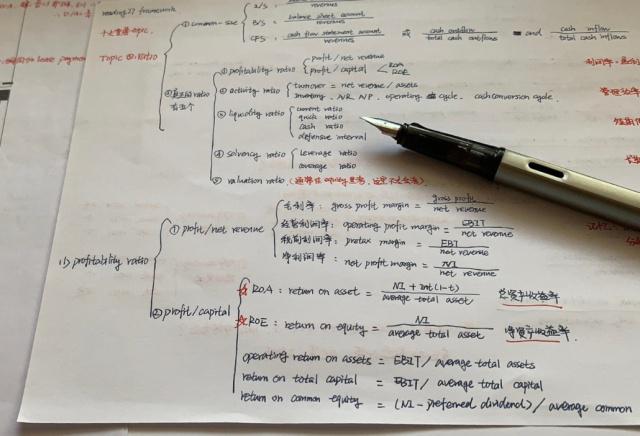 reading 27 framework
① common-size I/S: revenues
B/S: balance sheet account / revenues
CFS: cash flow statement account / revenues 或 cash outflow / total cash outflows = and cash inflow / total cash inflows
Topic 四: Ratio
① profitability ratio profit/net revenue
profit/capital ROA ROE
② activity ratio turnover = net revenue/assets
inventory. A/R A/P. operating cycle. cash conversion cycle.
③ liquidity ratio current ratio
quick ratio
cash ratio
defensive interval
④ solvency ratio leverage ratio
coverage ratio
⑤ valuation ratio
(1) profitability ratio
① profit/net revenue
毛利率: gross profit margin = gross profit / net revenue
经营利润率: operating profit margin = EBIT / net revenue
税前利润率: pretax margin = EBT / net revenue
净利润率: net profit margin = NI / net revenue
② profit/capital
☆ ROA: return on asset = NI + int(1-t) / average total asset 总资产收益率
☆ ROE: return on equity = NI / average total asset 净资产收益率.
operating return on assets = EBIT/ average total assets
return on total capital = EBIT/ average total capital
return on common equity = (NI - preferred dividend)/ average common